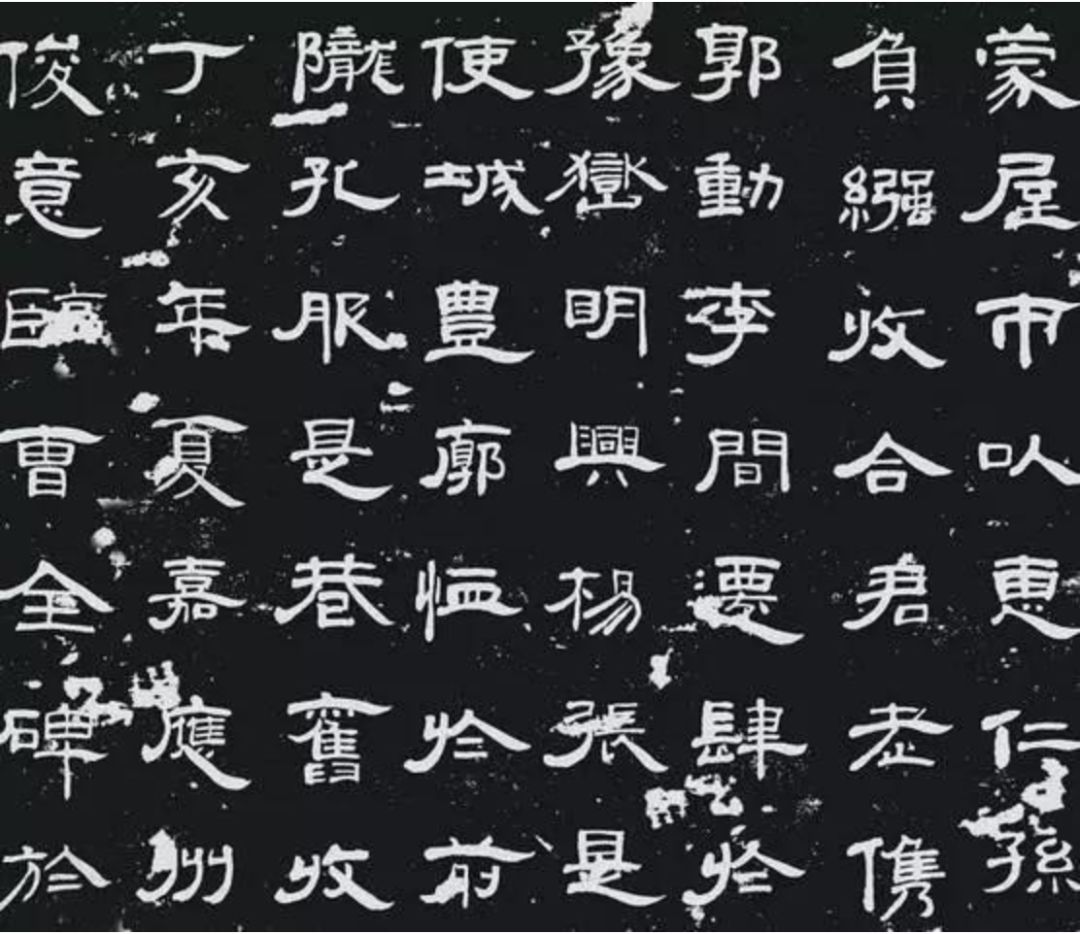 蒙屋市以惠仁孫
負繈收合君老儁
郭動李間肆於
豫嶽明興楊張是
使城豐廓恤於前
隴孔服是巷舊收
丁亥年夏嘉應州
俊意臨曹全碑於